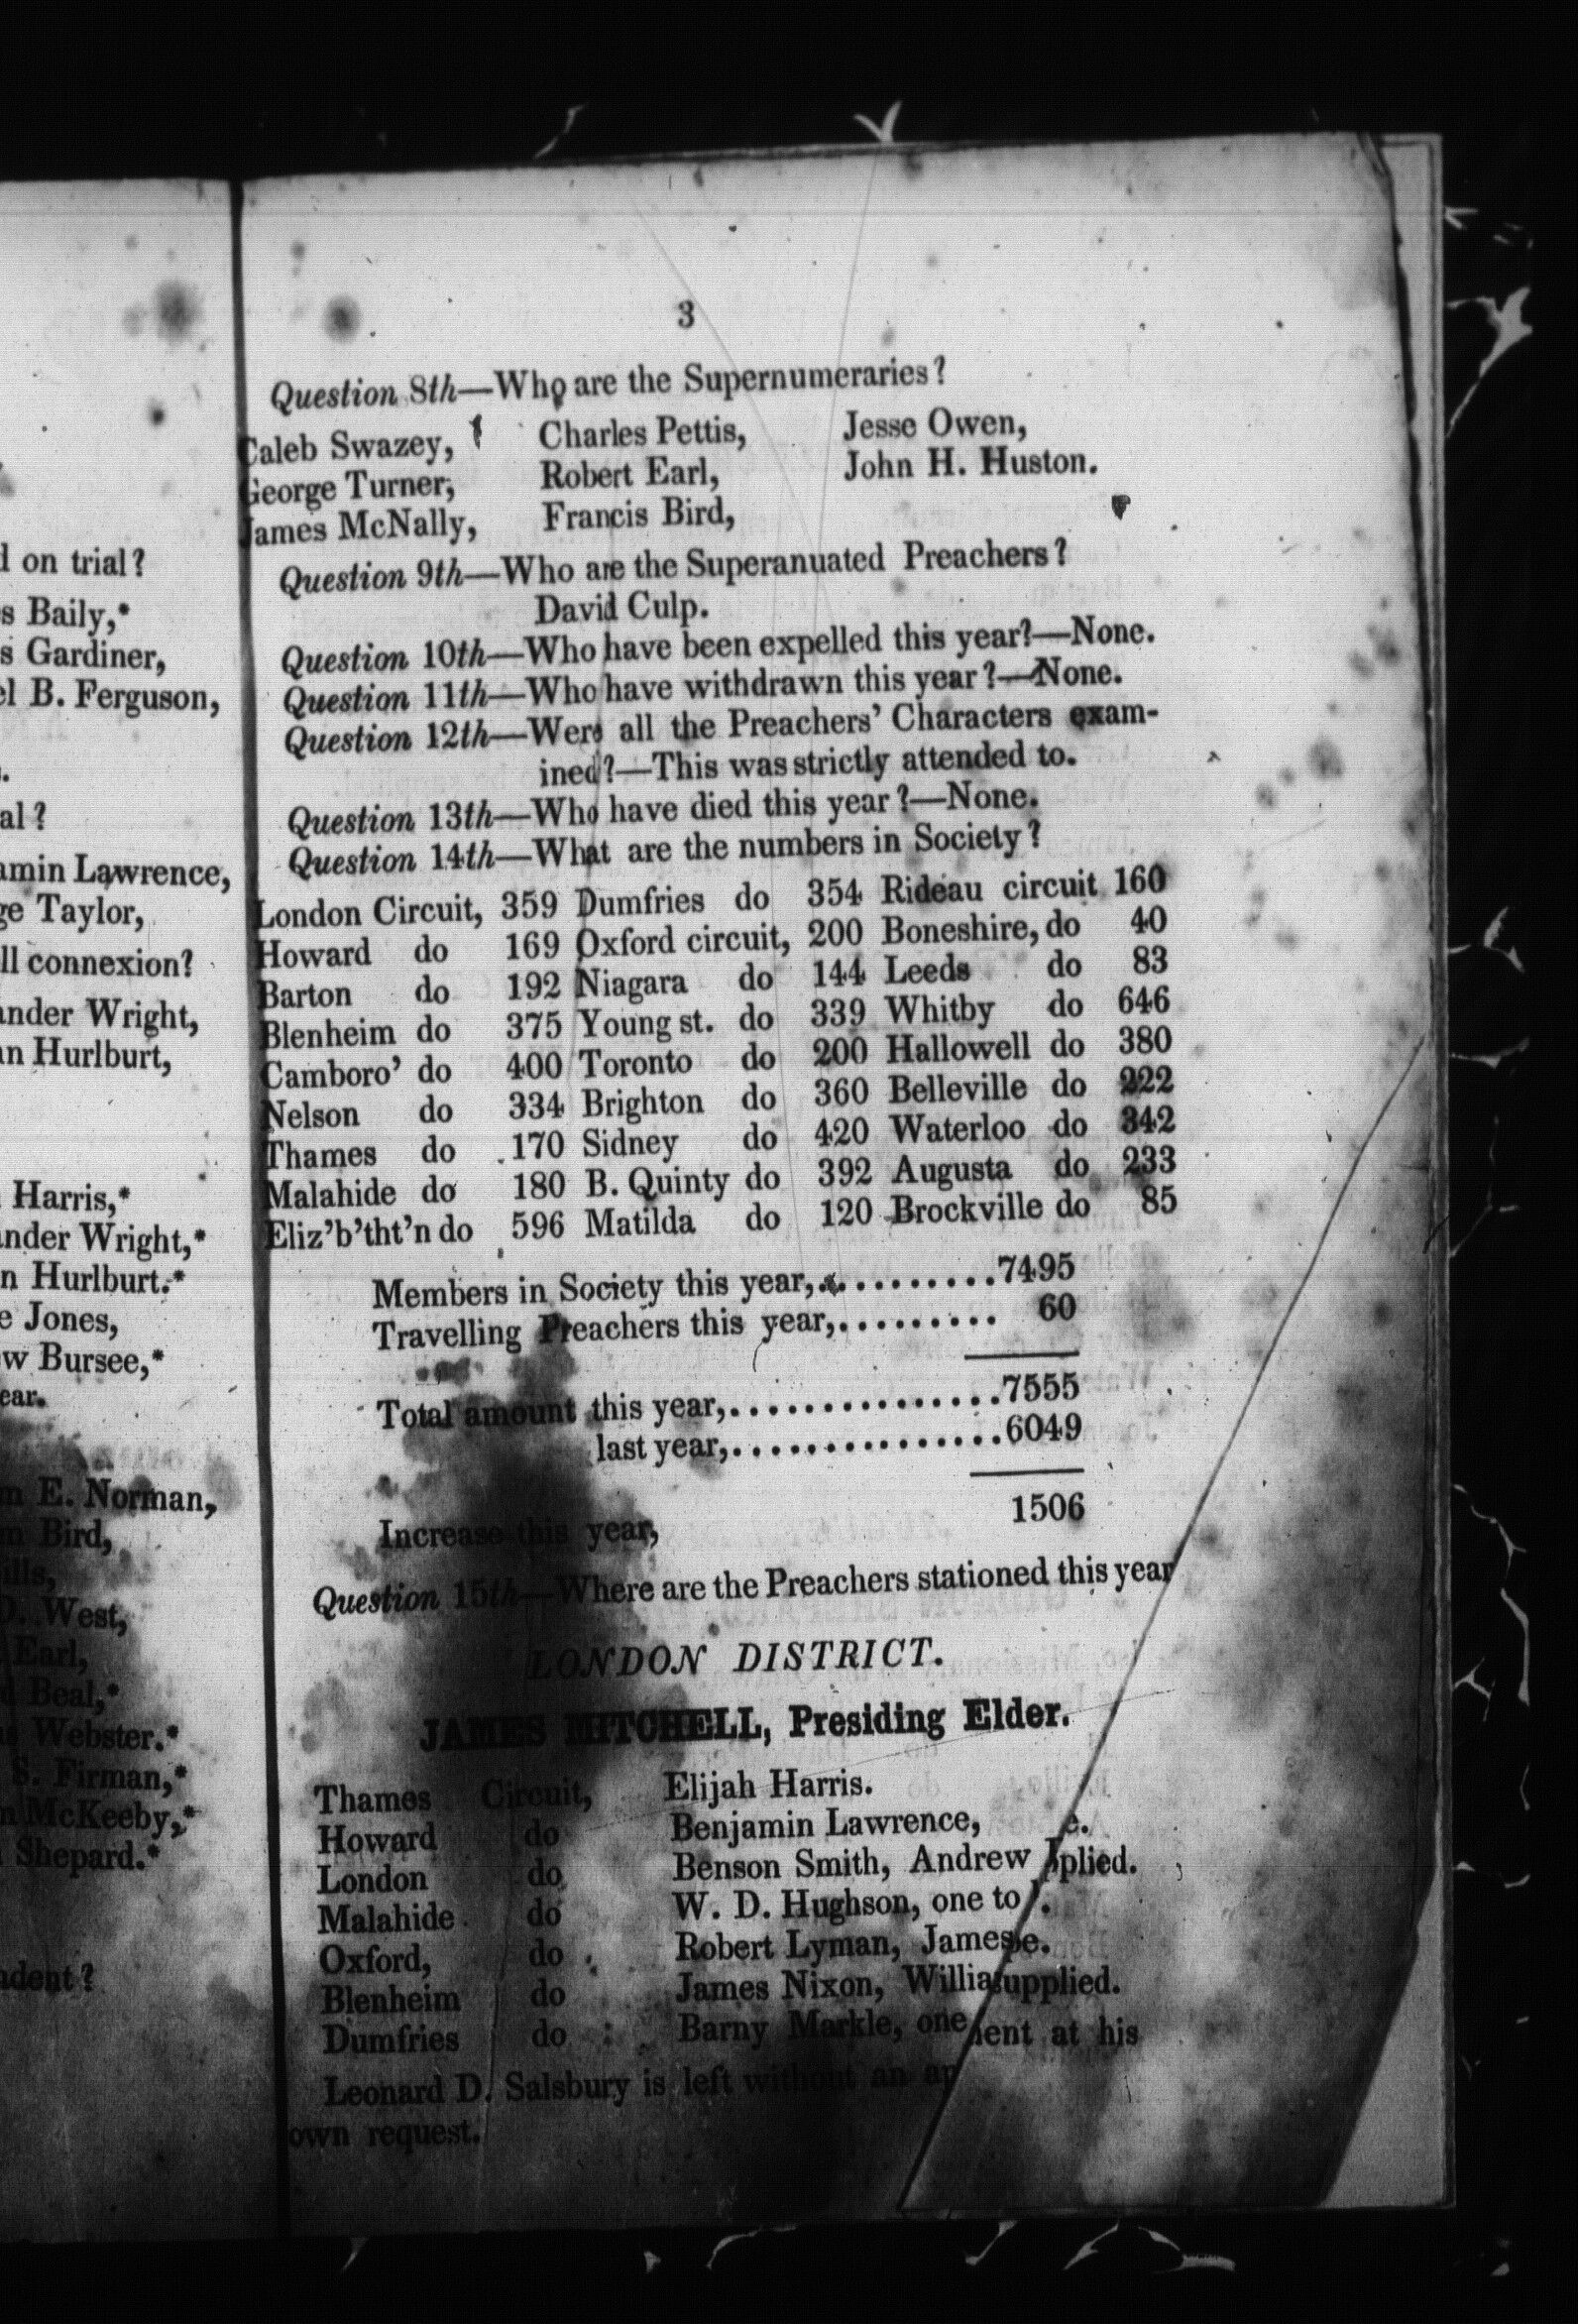 d on trial?
s Baily,*
s Gardiner,
el B. Ferguson,
al?
amin Lawrence,
ge Taylor,
ll connexion?
ander Wright,
an Hurlburt,
Harris,*
ander Wright,*
n Hurlburt.*
e Jones,
w Bursee,*
ear.
m E. Norman,
m Bird,
ills,
D. West,
Earl,
d Beal,*
as Webster.*
S. Firman,*
n McKeeby,*
Shepard.*
ndent?
3
Question 8th—Who are the Supernumeraries?
Caleb Swazey, Charles Pettis, Jesse Owen,
George Turner, Robert Earl, John H. Huston.
James McNally, Francis Bird,
Question 9th—Who are the Superanuated Preachers?
David Culp.
Question 10th—Who have been expelled this year?—None.
Question 11th—Who have withdrawn this year?—None.
Question 12th—Were all the Preachers' Characters exam-
ined?—This was strictly attended to.
Question 13th—Who have died this year?—None.
Question 14th—What are the numbers in Society?
London Circuit, 359 Dumfries do 354 Rideau circuit 160
Howard do 169 Oxford circuit, 200 Boneshire, do 40
Barton do 192 Niagara do 144 Leeds do 83
Blenheim do 375 Young st. do 339 Whitby do 646
Camboro' do 400 Toronto do 200 Hallowell do 380
Nelson do 334 Brighton do 360 Belleville do 222
Thames do 170 Sidney do 420 Waterloo do 342
Malahide do 180 B. Quinty do 392 Augusta do 233
Eliz'b'tht'n do 596 Matilda do 120 Brockville do 85
Members in Society this year,..........7495
Travelling Preachers this year,......... 60
Total amount this year,...............7555
last year,...............6049
Increase this year, 1506
Question 15th—Where are the Preachers stationed this year
LONDON DISTRICT.
JAMES MITCHELL, Presiding Elder.
Thames Circuit, Elijah Harris.
Howard do Benjamin Lawrence, e.
London do Benson Smith, Andrew plied.
Malahide do W. D. Hughson, one to
Oxford, do Robert Lyman, James e.
Blenheim do James Nixon, Willia supplied.
Dumfries do Barny Markle, one
Leonard D. Salsbury is left without an ap ent at his
own request.